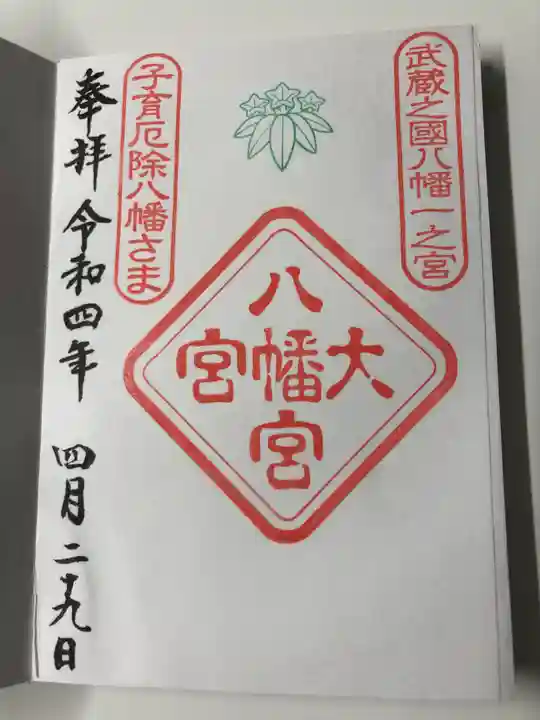 武蔵之國八幡一之宮
八
大幡宮
宮
子育厄除八幡さま
奉拝 令和四年 四月二十九日